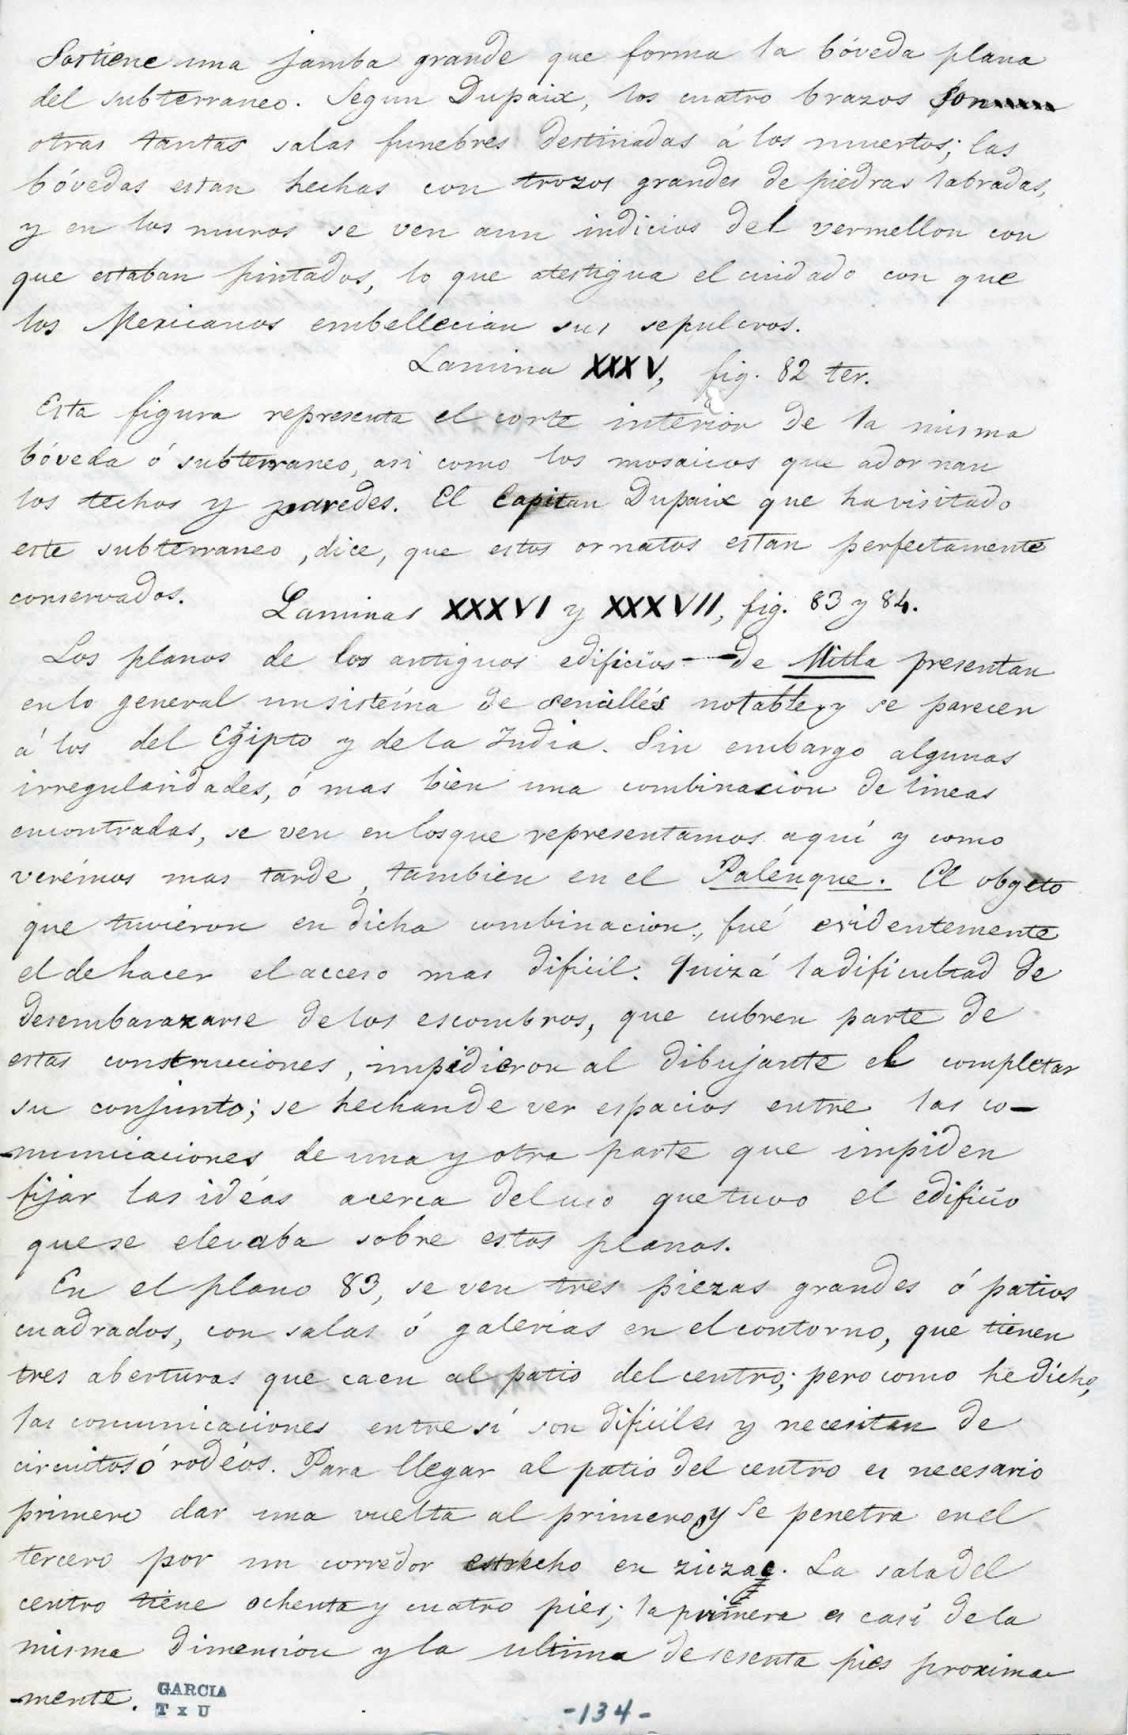 Sostiene una jamba grande que forma la bóveda plana
del subterraneo. Segun Dupaix, los cuatro brazos son
otras tantas salas funebres destinadas á los muertos; las
bóvedas estan hechas con trozos grandes de piedras labradas,
y en los muros se ven aun indicios del vermellon con
que estaban pintados, lo que atestigua el cuidado con que
los Mexicanos embellecian sus sepulcros.
Lamina XXXV, fig. 82 ter.
Esta figura representa el corte interior de la misma
bóveda ó subterraneo, asi como los mosaicos que adornan
los techos y paredes. El Capitan Dupaix que ha visitado
este subterraneo, dice, que estos ornatos estan perfectamente
conservados.
Laminas XXXVI y XXXVII, fig. 83 y 84.
Los planos de los antiguos edificios - de Mitla presentan
en lo general un sistéma de sencillés notable, y se parecen
á los del Egipto y de la India. Sin embargo algunas
irregularidades, ó mas bien una combinacion de lineas
encontradas, se ven en los que representamos aquí y como
verémos mas tarde, tambien en el Palenque. El obgeto
que tuvieron en dicha combinacion, fué evidentemente
el de hacer el acceso mas dificil. Quizá la dificultad de
desembarazarse de los escombros, que cubren parte de
estas construcciones, impidieron al dibujante el completar
su conjunto; se hechan de ver espacios entre las co-
-municaciones de una y otra parte que impiden
fijar las idéas acerca del uso que tuvo el edificio
que se elevaba sobre estos planos.
En el plano 83, se ven tres piezas grandes ó patios
cuadrados, con salas ó galerias en el contorno, que tienen
tres aberturas que caen al patio del centro; pero como he dicho,
las comunicaciones entre sí son dificiles y necesitan de
circuitos ó rodéos. Para llegar al patio del centro es necesario
primero dar una vuelta al primero, y se penetra en el
tercero por un corredor estrecho en ziczac. La sala del
centro tiene ochenta y cuatro pies; la primera es casi de la
misma dimension y la ultima de sesenta pies proxima-
-mente.
GARCIA
T x U
-134-